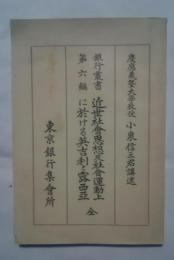 慶應義塾大學敎授 小泉信三君講述
銀行叢書 第六編
近世社會思想及社會運動上に於ける英吉利と露西亞 全
東京銀行集會所